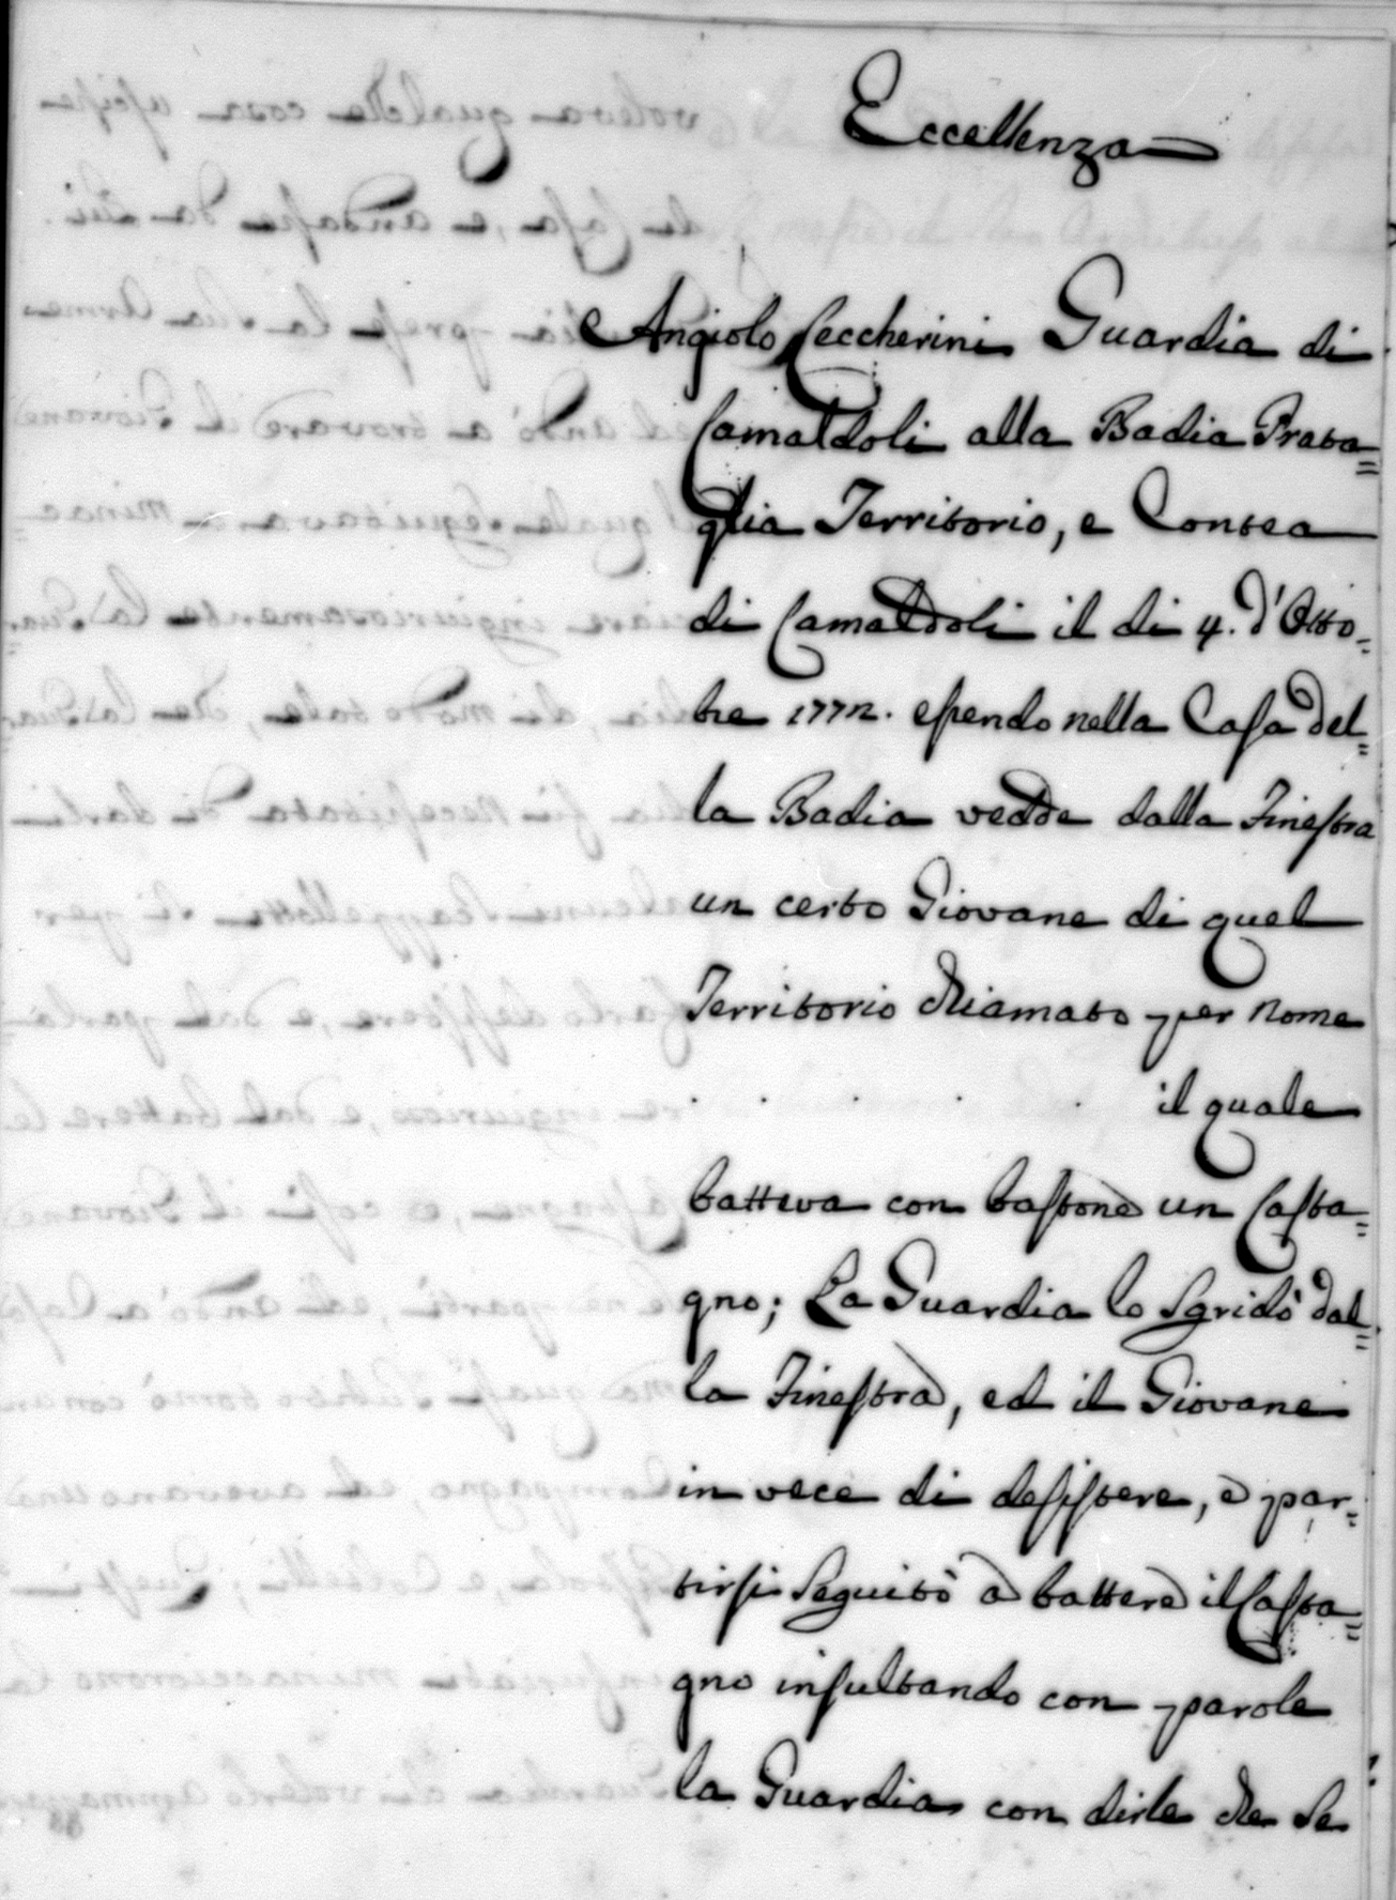 Eccellenza
Angiolo Ceccherini Guardia di
Camaldoli alla Badia Prata=
glia Territorio, e Contea
di Camaldoli il di 4. d'Otto=
bre 1772. essendo nella Casa del=
la Badia vedde dalla Finestra
un certo Giovane di quel
Territorio chiamato per nome
. . . . . il quale
batteva con bastone un Casta=
gno; La Guardia lo sgridò dal=
la Finestra, ed il Giovane
in vece di desistere, e par=
tirsi seguitò a battere il Casta=
gno insultando con parole
la Guardia con dirle che se